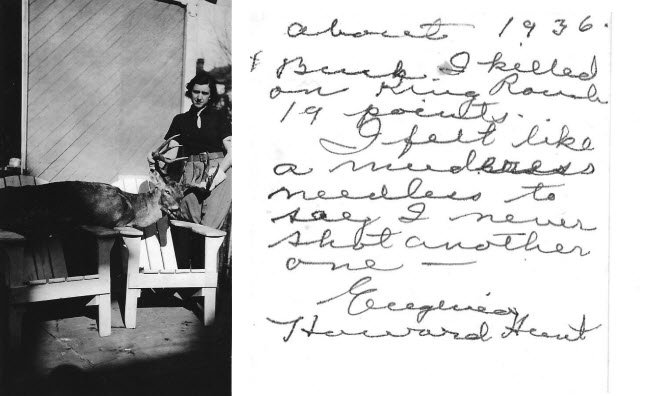 about 1936.
Buck I killed
on King Ranch
19 points.
I felt like
a murderess
needless to
say I never
shot another
one —
Eugenia
Howard Hunt